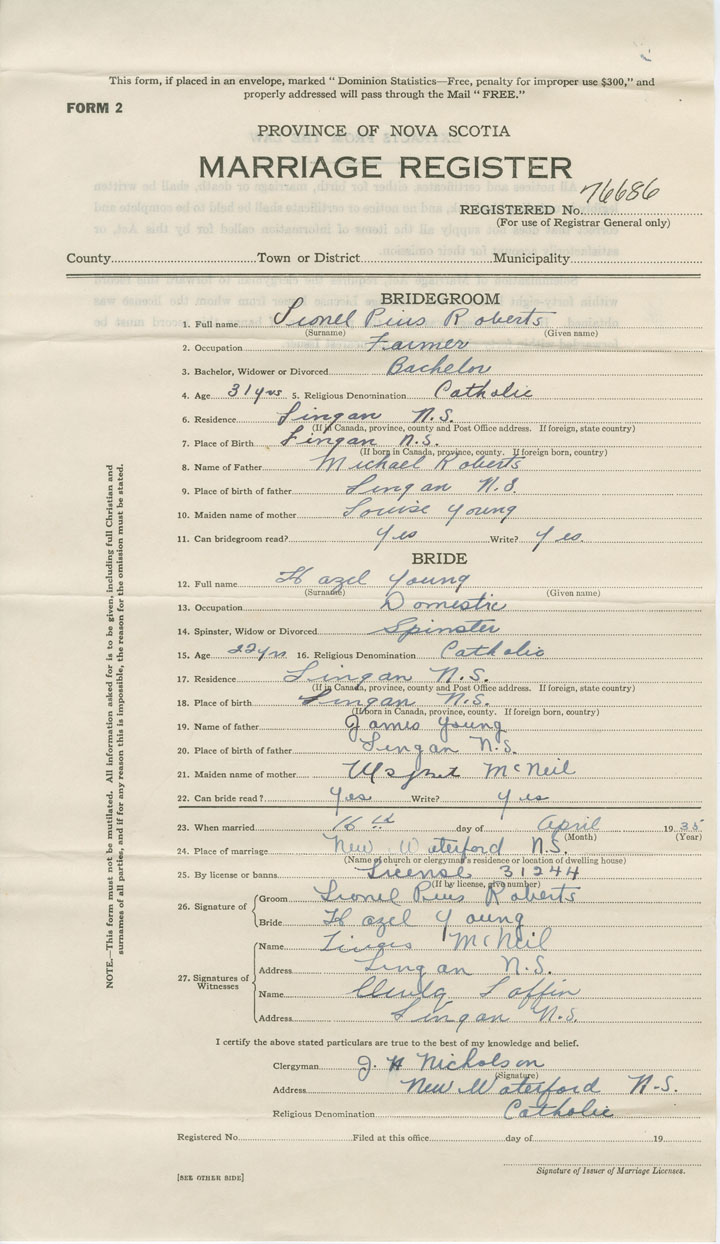 This form, if placed in an envelope, marked " Dominion Statistics—Free, penalty for improper use $300," and
properly addressed will pass through the Mail " FREE."
FORM 2
PROVINCE OF NOVA SCOTIA
MARRIAGE REGISTER
REGISTERED No. 76686
(For use of Registrar General only)
County Town or District Municipality
BRIDEGROOM
1. Full name Lionel Pius Roberts
(Surname) (Given name)
2. Occupation Farmer
3. Bachelor, Widower or Divorced Bachelor
4. Age 31 yrs 5. Religious Denomination Catholic
6. Residence Lingan N.S.
(If in Canada, province, county and Post Office address. If foreign, state country)
7. Place of Birth Lingan N.S.
(If born in Canada, province, county. If foreign born, country)
8. Name of Father Michael Roberts
9. Place of birth of father Lingan N.S.
10. Maiden name of mother Louise Young
11. Can bridegroom read? Yes Write? Yes.
BRIDE
12. Full name Hazel Young
(Surname) (Given name)
13. Occupation Domestic
14. Spinster, Widow or Divorced Spinster
15. Age 22 yrs 16. Religious Denomination Catholic
17. Residence Lingan N.S.
(If in Canada, province, county and Post Office address. If foreign, state country)
18. Place of birth Lingan N.S.
(If born in Canada, province, county. If foreign born, country)
19. Name of father James Young
20. Place of birth of father Lingan N.S.
21. Maiden name of mother McNeil
22. Can bride read? Yes Write? Yes
23. When married 16th day of April 1935
(Month) (Year)
24. Place of marriage New Waterford N.S.
(Name of church or clergyman's residence or location of dwelling house)
25. By license or banns License 31244
(If by license, give number)
26. Signature of Groom Lionel Pius Roberts
Bride Hazel Young
27. Signatures of Witnesses
Name McNeil
Address Lingan N.S.
Name Laffin
Address Lingan N.S.
I certify the above stated particulars are true to the best of my knowledge and belief.
Clergyman J. H Nicholson
(Signature)
Address New Waterford N.S.
Religious Denomination Catholic
Registered No. Filed at this office day of 19
Signature of Issuer of Marriage Licenses.
[SEE OTHER SIDE]
NOTE.—This form must not be mutilated. All information asked for is to be given, including full Christian and
surnames of all parties, and if for any reason this is impossible, the reason for the omission must be stated.